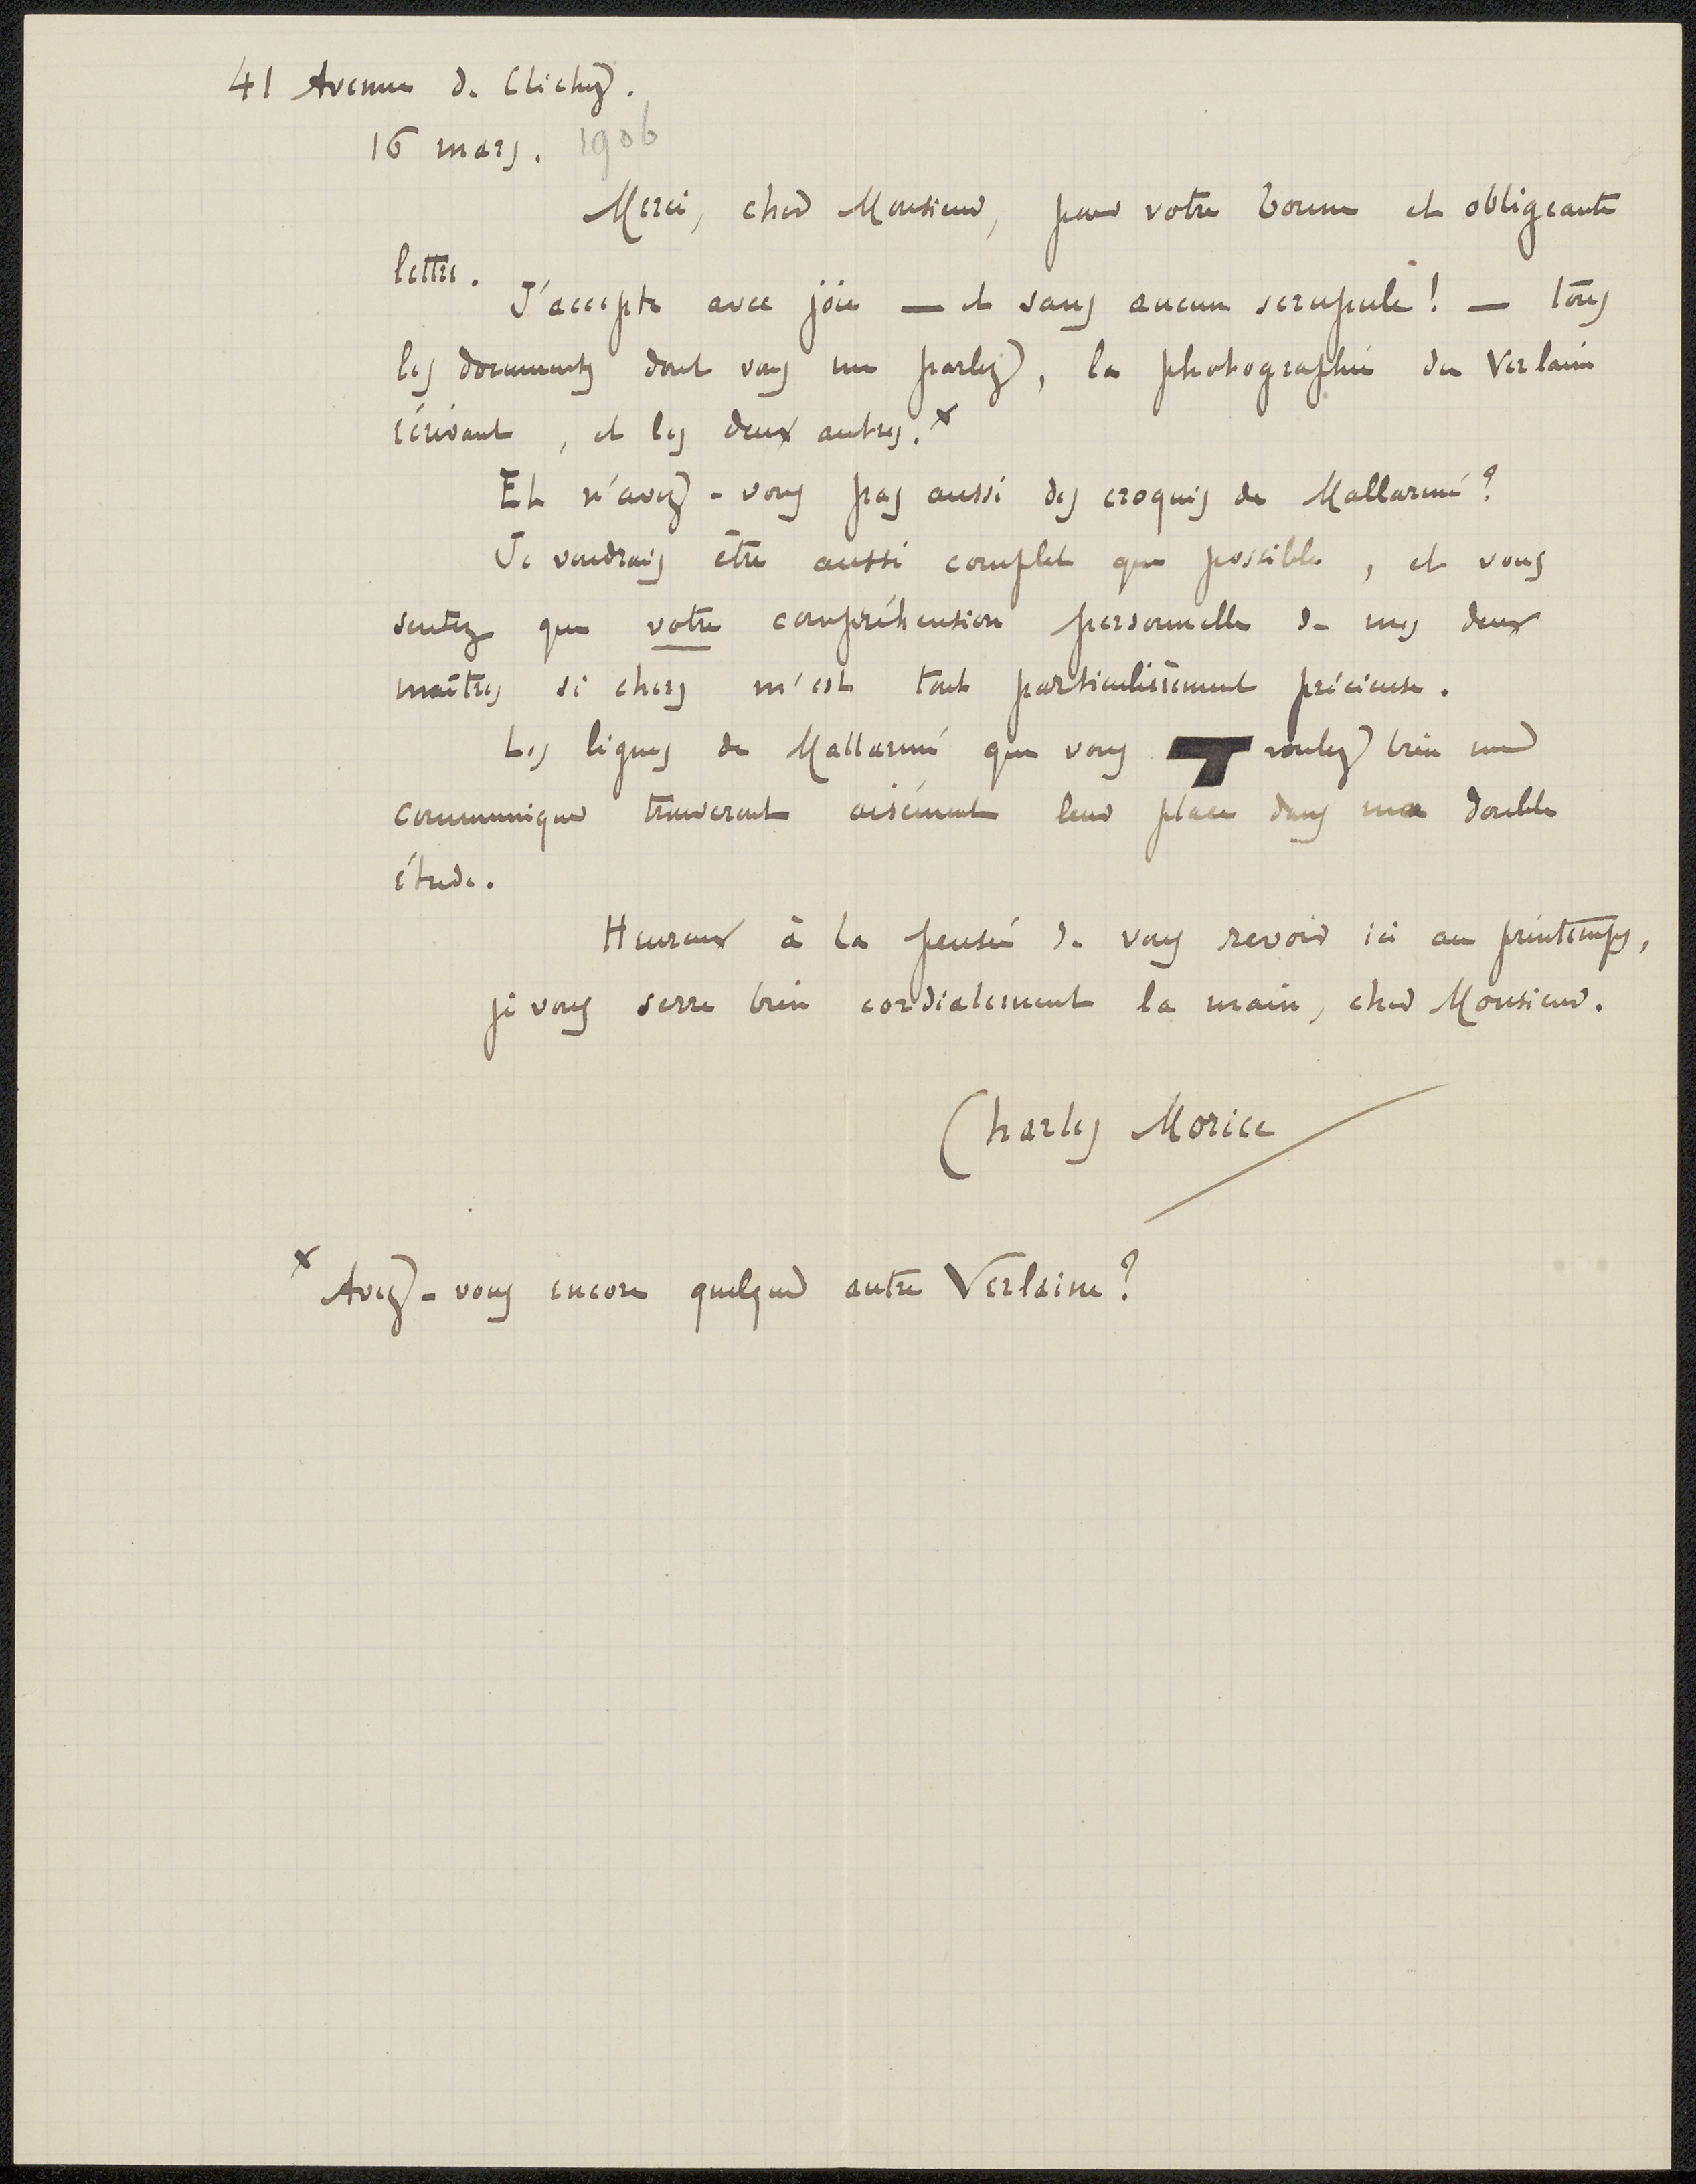 41 Avenue de Clichy.
16 mars. 1906
Merci, cher Monsieur, pour votre bonne et obligeante
lettre.
J'accepte avec joie — et sans aucun scrupule ! — tous
les documents dont vous me parlez, la photographie de Verlaine
écrivant, et les deux autres. x
Et n'avez-vous pas aussi des croquis de Mallarmé ?
Je voudrais être aussi complet que possible, et vous
sentez que votre compréhension personnelle de mes deux
maîtres si chers m'est tout particulièrement précieuse.
Les lignes de Mallarmé que vous voulez bien me
communiquer trouveront aisément leur place dans ma double
étude.
Heureux à la pensée de vous revoir ici au printemps,
je vous serre bien cordialement la main, cher Monsieur.
Charles Morice
x Avez-vous encore quelque autre Verlaine ?